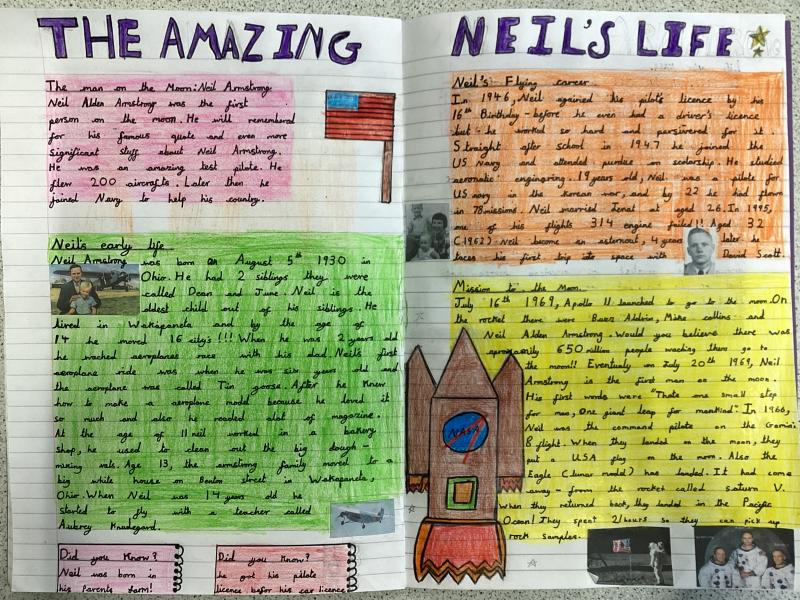 THE AMAZING
The man on the Moon: Neil Armstrong
Neil Alden Armstrong was the first
person on the moon. He will remembered
for his famous quote and even more
significant stuff about Neil Armstrong.
He was an amazing test pilote. He
flew 200 aircrafts. Later then he
joined Navy to help his country.
Neil's early life
Neil Armstrong was born on August 5th 1930 in
Ohio. He had 2 siblings they were
called Dean and June. Neil is the
oldest child out of his siblings. He
lived in Wakapaneta and by the age of
14 he moved 16 city's!!! When he was 2 years old
he wached aeroplanes race with his dad. Neil's first
aeroplane ride was when he was six years old and
the aeroplane was called Tin goose. After he knew
how to make a aeroplane model because he loved it
so much and also he readed alot of magazine.
At the age of 11 neil worked in a bakery
shop, he used to clean out the big dough -
mixing vats. Age 13, the armstrong family moved to a
big white house on Benton street in Wakapaneta,
Ohio. When Neil was 14 years old he
started to fly with a teacher called
Aubrey Knudegard.
Did you know?
Neil was born in
his Parents farm!
Did you know?
he got his pilote
licence befor his car licence
NEIL'S LIFE
Neil's Flying career
In 1946, Neil agained his pilot's licence by his
16th Birthday - before he even had a driver's licence
but he worked so hard and persivered for it.
Straight after school in 1947 he joined the
US Navy and attended purdue on scolorship. He studied
aeronatic engineering. 19 years old, Neil was a pilote for
US navy in the Korean war, and by 22 he had flown
in 78 missions. Neil married Janat at aged 26. In 1995,
one of his flights 314 engine failed!! Aged 32
(1962) Neil become an asternout, 4 years later he
taces his first trip into space with David Scott.
Mission to the Moon.
July 16th 1969, Apollo 11 launched to go to the moon. On
the rocket there were Buzz Aldrin, Mike collins and
Neil Alden Armstrong. Would you believe there was
650 million people waching them go to
the moon!! Eventualy on July 20th 1969, Neil
Armstrong is the first man on the moon.
His first words were "Thats one small step
for man, One giant leap for mankind". In 1966,
Neil was the command pilote on the Gamini
8 flight. When they landed on the moon, they
put a USA flag on the moon. Also the
Eagle (lunar modal) has landed. It had come
away from the rocket called saturn V.
When they returned back, they landed in the Pacific
Ocean! They spent 21 hours so they can pick up
rock samples.
NASA